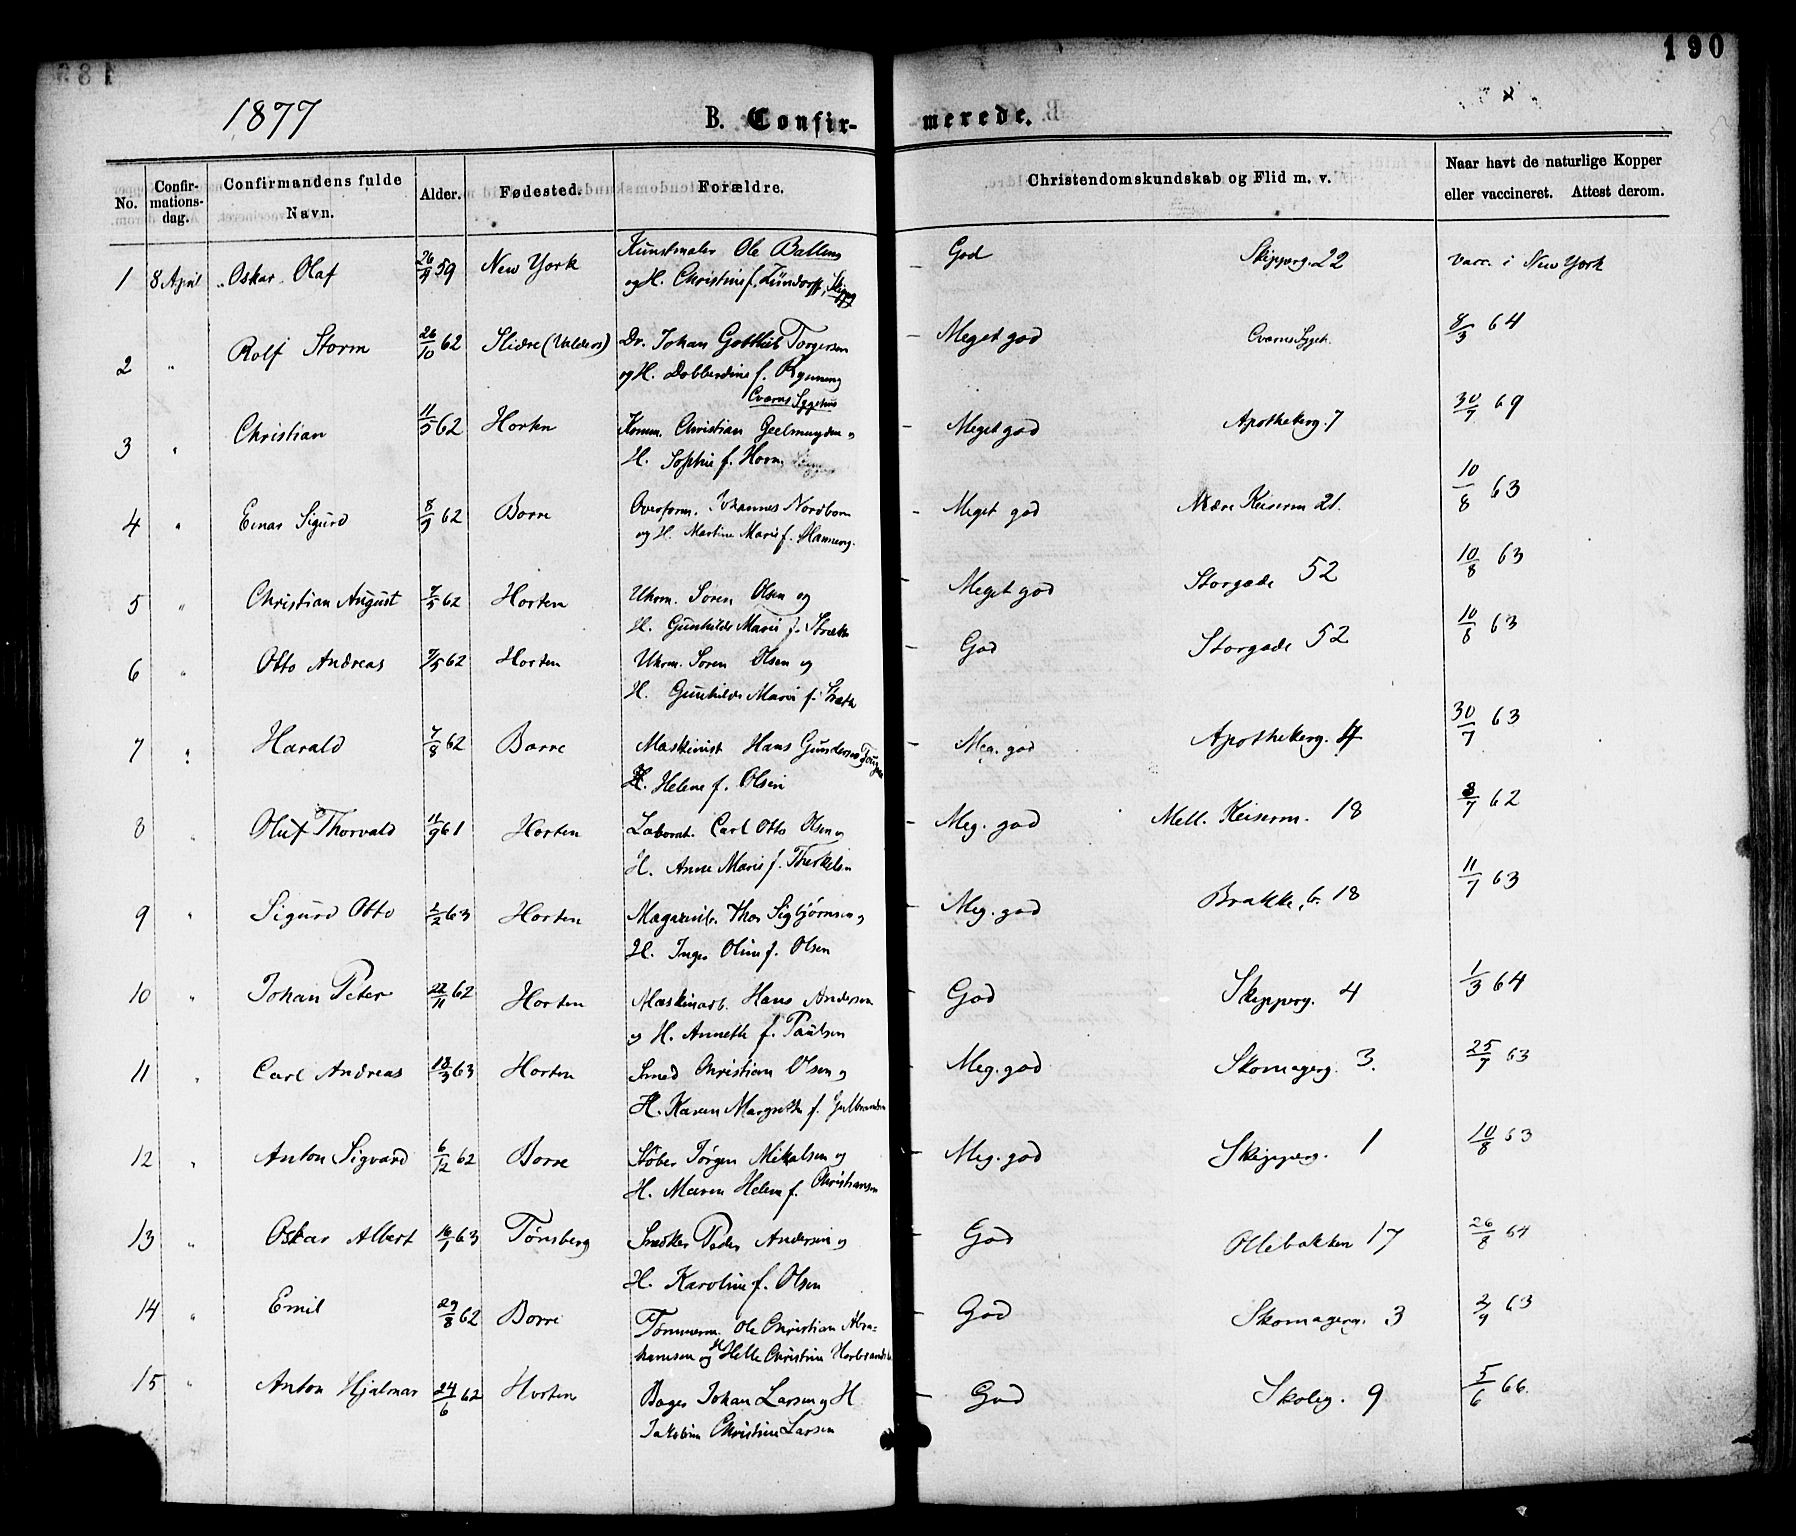 190
1877
B. Confir- merede.
No. Confirmationsdag. Confirmandens fulde Navn. Alder. Fødested. Forældre. Christendomskundskab og Flid m. v. Naar havt de naturlige Kopper eller vaccineret. Attest derom.
1 8 April Oskar Olaf 26/9 59 New York Kunstmaler Ole Balling God Skipperg. 22 vacc. i New York
og H. Christine f. Zündorff, Skipperg
2 " Rolf Storm 26/10 62 Slidre (Valders) Dr. Johan Gotthilf Torgersen Meget god Cværns Sygeh. 8/3 64
og H. Dobberdine f. Rynning
Cværns Sygehus
3 " Christian 11/5 62 Horten Komm. Christian Geelmuyden og Meget god Apothekerg. 7 30/7 69
H. Sophie f. Horn
4 " Einar Sigurd 8/9 62 Borre Overform. Johannes Nordbom Meget god Nedre Keiserm 21. 10/8 63
og H. Martine Marie f.
5 " Christian August 7/5 62 Horten Ukrm. Soren Olsen og Meget god Storgade 52 10/8 63
H. Gunhilde Marie f.
6 " Otto Andreas 7/5 62 Horten Ukrm. Soren Olsen og God Storgade 52 10/8 63
H. Gunhilde Marie f.
7 " Harald 7/8 62 Borre Maskinist Hans Gundersen Meg. god Apothekerg. 4 30/7 63
H. Helene f. Olsen
8 " Oluf Thorvald 11/9 61 Horten Laborat. Carl Otto Olsen og Meg. god Mell. Keiserm. 18 8/7 62
H. Anne Marie f. Therkelsen
9 " Sigurd Otto 1/2 63 Horten Magasinb. Thor Sigbjørnsen og Meg. god Brakke, b. 18 11/7 63
H. Inger Oline f. Olsen
10 " Johan Peter 22/11 62 Horten Maskinarb. Hans Andersen God Skipperg. 4 1/3 64
og H. Annette f. Paulsen
11 " Carl Andreas 18/3 63 Horten Smed Christian Olsen og Meg. god Skomagerg. 3. 25/7 63
H. Karen Margrethe f. Gulbrandsen
12 " Anton Sigvard 6/12 62 Borre Støber Jørgen Mikalsen og Meg. god Skipperg. 1 10/8 63
H. Maren Helene f. Christiansen
13 " Oskar Albert 16/1 63 Tønsberg Snedker Peder Andersen og God Ollebakken 17 26/8 64
H. Karoline f. Olsen
14 " Emil 29/8 62 Borre Tømmerm. Ole Christian Abra- God Skomagerg. 3 2/9 63
hamsen og H. Helle Christine
15 " Anton Hjalmar 24/6 62 Horten Bager Johan Larsen og H God Skoleg. 9 5/6 66.
Jakobine Christine Larsen